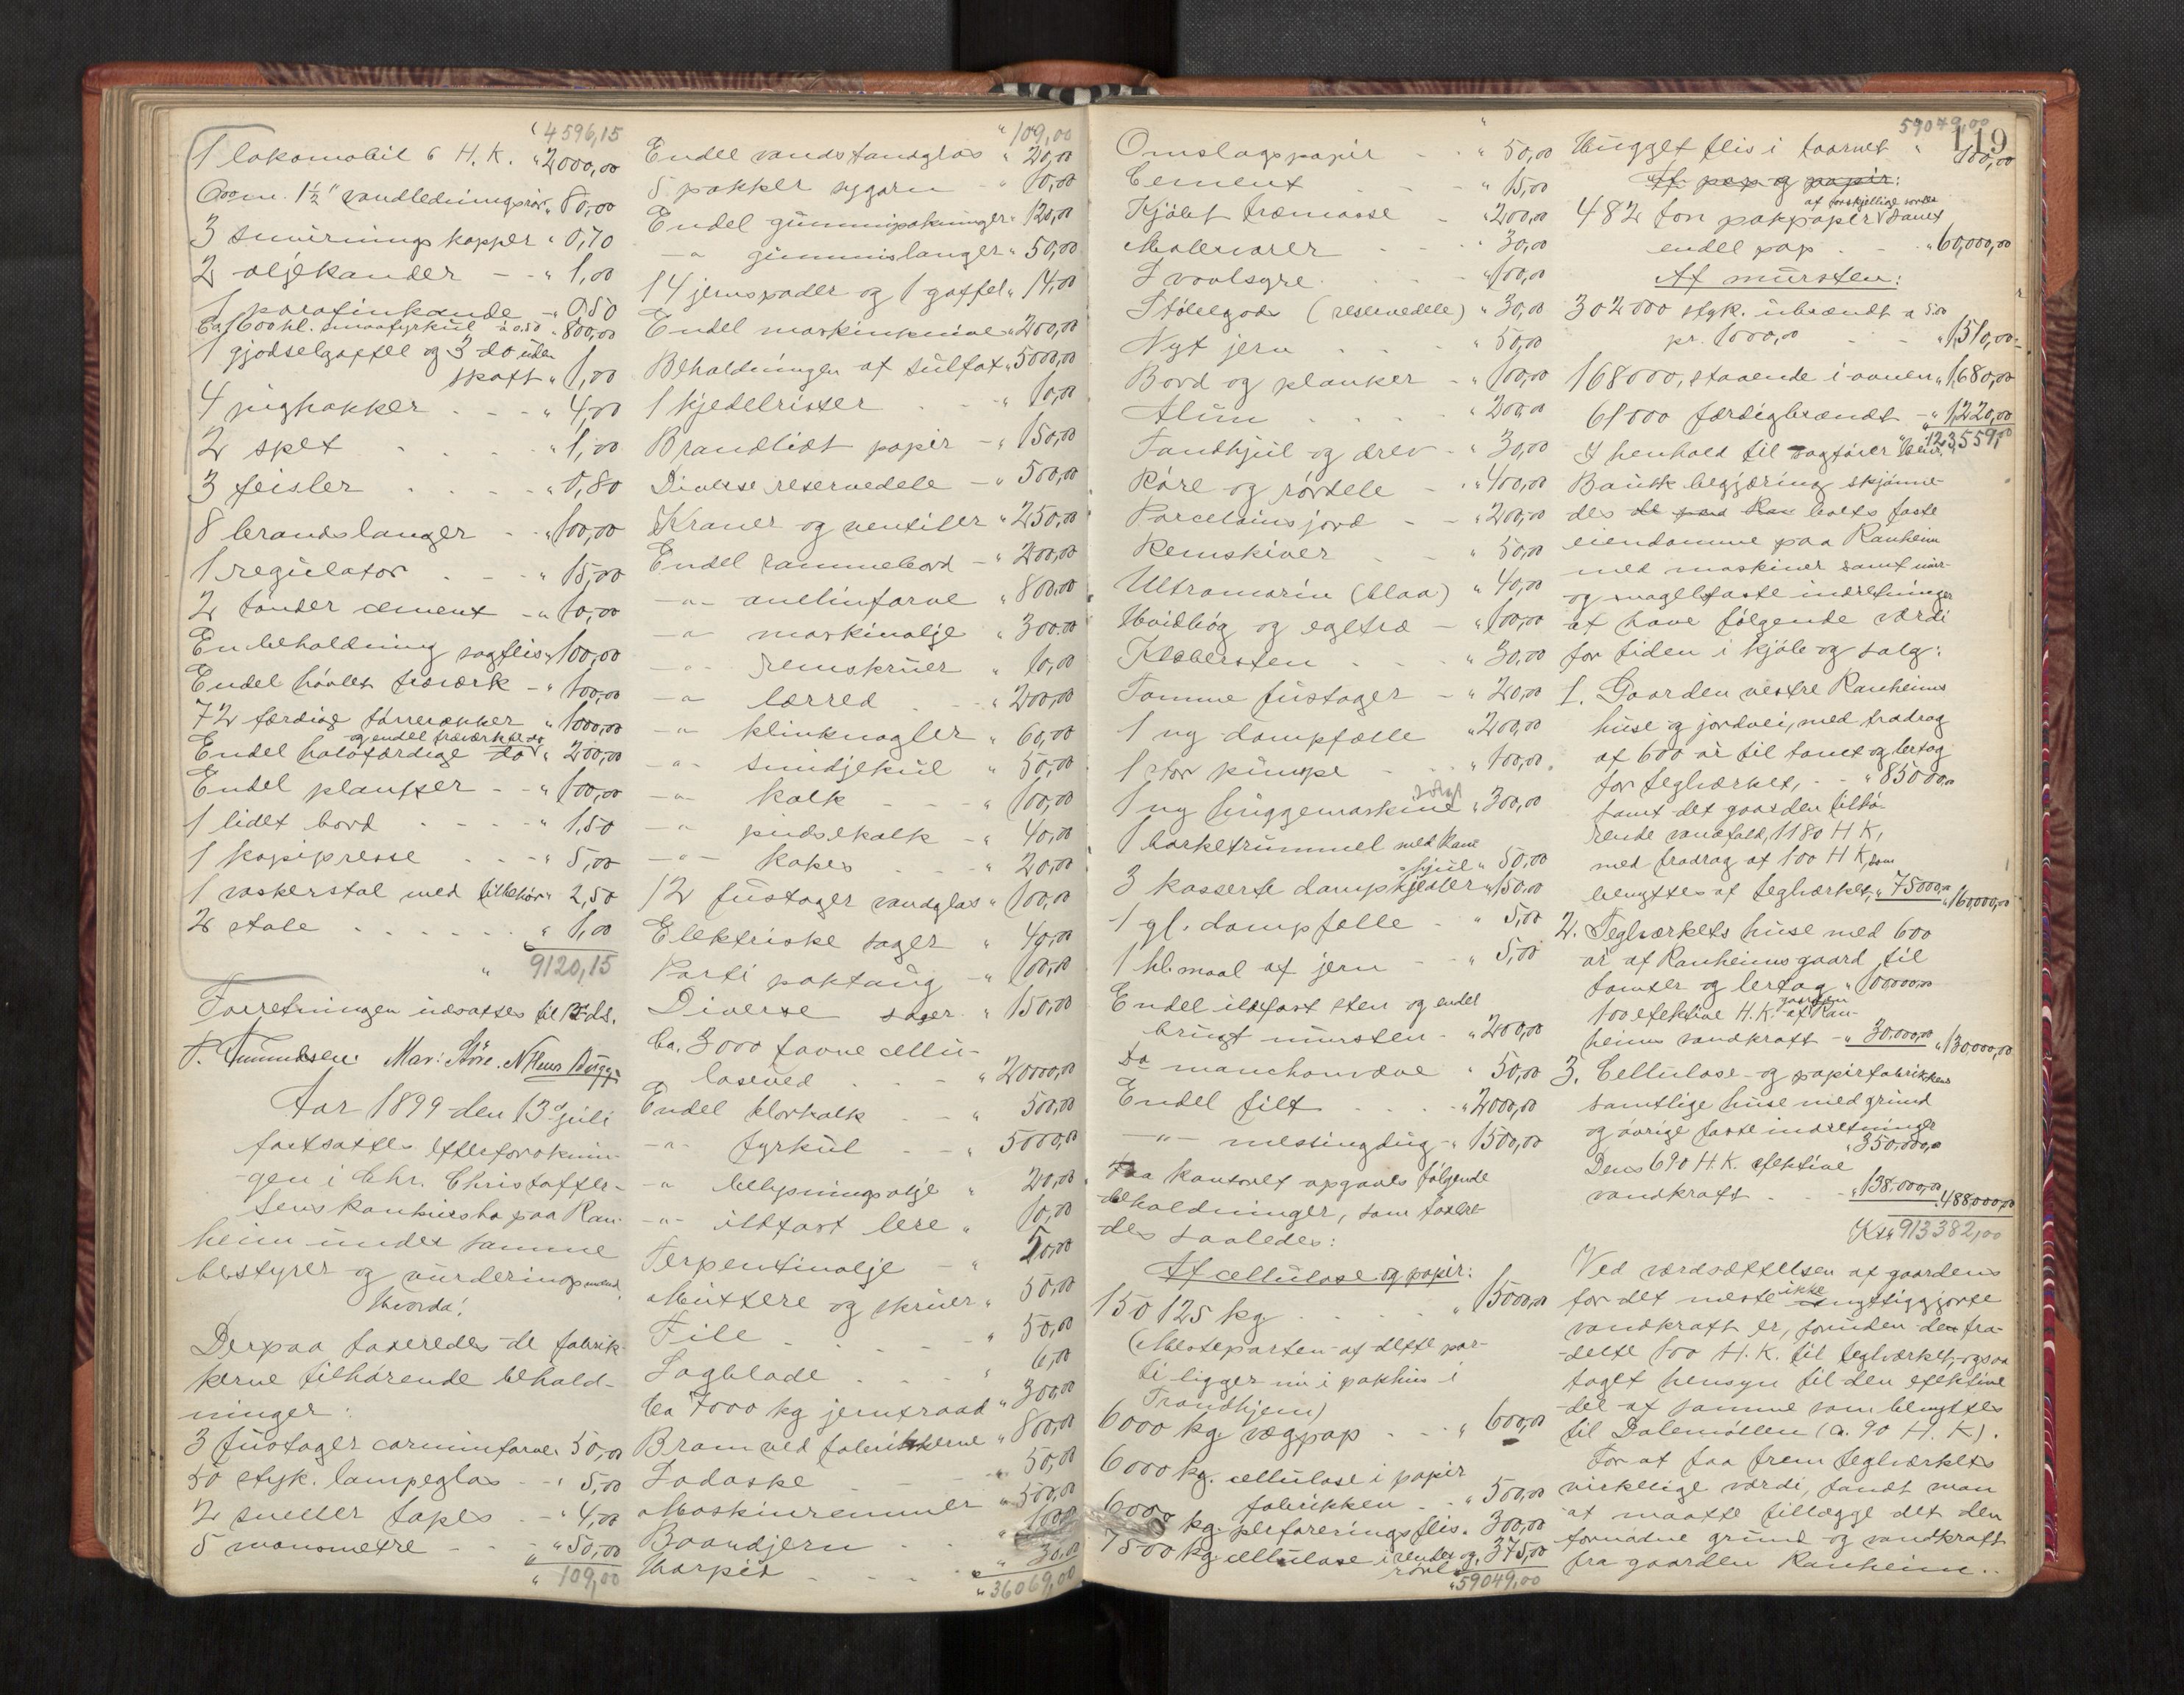 4596,15
1 lokomobil 6 H. K. " 2000,00
60 m. 1½" vandledningsrør " 80,00
3 smurningskopper " 0,70
2 oljekander - - " 1,00
1 parafinkande - " 0,50
Ca 1600 hl. smaafyrkul à 0.50 " 800,00
1 gjødselgaffel og 3 do uden
skaft " 1,00
4 jaghakker . - - " 4,00
2 spet . . . . " 1,00
3 feisler . . . . " 0,80
8 brandslanger - - " 100,00
1 regulator . - - " 15,00
2 tønder cement - " 10,00
En beholdning sagflis " 100,00
Endel høvlet træværk - " 100,00
72 færdige tørrerækker " 1000,00
og endel træværk til do
Endel halvfærdige do " 200,00
Endel planker - - " 100,00
1 lidet bord . . . " 1,50
1 kopipresse . - - " 5,00
1 vaskerstol med tilbehør " 2,50
2 stole . . . . . . " 1,00
" 9120,15
Forretningen udsattes til 13 ds.
P. Amundsen. Mar: Støre. N Hans Bugge
Aar 1899 den 13de juli
fortsattes efterforsknin-
gen i Chr. Christoffer-
sens konkursbo paa Ran-
heim under samme
bestyrer og vurderingsmænd.
Hvorda!
Derpaa taxeredes de fabrik-
kerne tilhørende behold-
ninger:
3 fustager carminfarve " 50,00
50 styk. lampeglas - " 5,00
2 sneller tapes . - " 4,00
5 manometre - - - " 50,00
" 109,00
" 109,00
Endel vandstandglas " 20,00
5 pakker sygarn - " 10,00
Endel gummipakninger " 120,00
-"- gummislanger " 50,00
14 jernspader og 1 gaffel " 14,00
Endel maskinknive " 200,00
Beholdningen af sulfat " 5000,00
1 kjedelrister . . - " 10,00
Brandlidt papir - " 150,00
Diverse reservedele - " 500,00
Kraner og ventiler " 250,00
Endel rammebord - " 200,00
-"- anelinfarve " 800,00
-"- maskinolje " 300,00
-"- remskruer " 10,00
-"- lærred . - " 200,00
-"- klinknagler " 60,00
-"- smidjekul " 50,00
-"- kalk - - - " 100,00
-"- pudsekalk - " 40,00
-"- kokes . . . " 20,00
12 fustager vandglas " 100,00
Elektriske sager " 40,00
Parti paktaug - " 100,00
Diverse sager . " 150,00
Ca. 3000 favne cellu-
loseved . . - " 20000,00
Endel klorkalk - - " 500,00
-"- fyrkul - - " 5000,00
-"- belysningsolje " 20,00
-"- ildfast lere " 10,00
Terpentinolje - " 50,00
Muttere og skruer " 50,00
File . . . . - " 50,00
Sagblade . . . " 6,00
Ca 7000 kg jerntraad " 300,00
Bram ved fabrikkerne " 800,00
Sodaske - - " 50,00
Maskinremmer " 500,00
Baandjern . . " 100,00
Harpix . . - - " 30,00
" 36069,00
Omslagspapir - - " 50,00
Cement . . - - " 15,00
Kjøbt træmasse - " 200,00
Malervarer . - - - " 30,00
Svovlsyre . . - - " 100,00
Støbegods (reservedele) " 30,00
Nyt jern . . . . " 50,00
Bord og planker - " 100,00
Alun . . . . . " 200,00
Tandhjul og drev - " 30,00
Røre og rørdele - " 400,00
Porcelainsjord - - " 200,00
Remskiver . . . " 50,00
Ultramarin (blaa) " 40,00
Hvidbøg og egetræ - " 100,00
Klebersten . . . " 30,00
Tomme fustager - " 20,00
1 ny dampfælle " 200,00
1 stor pumpe - - " 100,00
solgt
1 ny huggemaskine " 300,00
1 barketrummel med kam
hjul " 50,00
3 kasserte dampkjedler " 150,00
1 gl. dampfelle - " 5,00
1 hl. maal af jern - - " 5,00
Endel ildfast sten og endel
brugt mursten - " 200,00
Do manchonvæve " 50,00
Endel filt . . . - " 2000,00
-"- messingdug - " 1500,00
Paa kontoret opgaves følgende
beholdninger, som taxere-
des saaledes:
Af cellulose og papir:
150125 kg . . . . " 15000,00
(Mesteparten af dette par-
ti ligger nu i pakhus i
Trondhjem)
6000 kg vægpap . - - " 600,00
6000 kg. cellulose i papir
fabrikken . - " 500,00
6000 kg. perforeringsflis " 300,00
7500 kg cellulose i render og " 375,00
rør
" 59049,00
59049,00
119
Hugget flis i taarnet " 100,00
Af pap og papir:
af forskjellige sorter
482 ton pakpapir samt
endel pap - - " 60,000,00
Af mursten:
302000 styk. ubrændt a 5,00
pr. 1000,0 - - " 1,510,00
168000, staaende i ovnen " 1680,00
61000 færdigbrændt - " 1,220,00
" 123,559,00
I henhold til sagfører
Baucks begjæring skjønne-
des de paa Ran boets faste
eiendomme paa Ranheim
med maskiner samt mur-
og nagelfaste indretninger
at have følgende værdi
for tiden i kjøb og salg:
1. Gaarden vestre Ranheims
huse og jordvei, med fradrag
af 600 ar til tomt og lertag
for teglværket, - - " 85000,00
samt det gaarden tilhø-
rende vandfald, 1180 H K,
med fradrag af 100 H K, som
benyttes af teglværket, " 75000,00 " 160,000,00
2. Teglværkets huse med 600
ar af Ranheims gaard til
tomter og lertag " 100000,00
gaarden
100 efektive H.K. af Ran-
heims vandkraft - " 30,000,00 " 130,000,00
3. Cellulose- og papirfabrikkens
samtlige huse med grund
og øvrige faste indretninger
" 350.000,00
Dens 690 H. K. efektive
vandkraft . . - " 138,000,00 " 488,000,00
Kr. 913382,00
Ved værdsættelsen af gaardens
ikke
for det meste nyttiggjorte
vandkraft er, foruden den fra-
delte 100 H. K. til teglværket, ogsaa
taget hensyn til den efektive
del af samme som benyttes
til Dalemøllen (ca. 90 H. K).
For at faa frem teglværkets
virkelige værdi, fandt man
at maatte tillægge det den
fornødne grund og vandkraft
fra gaarden Ranheim..